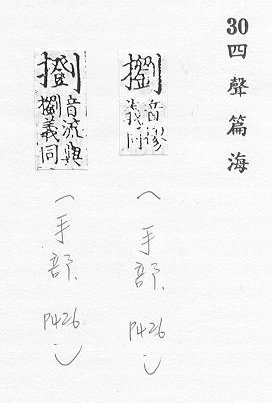 30
四聲篇海
音
義同
（手部、P426）
音流與
義同
（手部、P426）